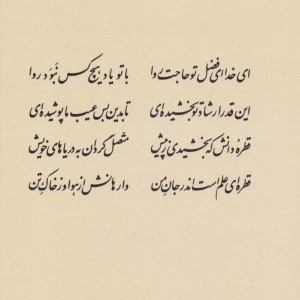 ای خدا ای فضل تو حاجت روا با تو یاد هیچ کس نبود روا
این قدر ارشاد تو بخشیده‌ای تا بدین بس عیب ما پوشیده‌ای
قطره دانش که بخشیدی ز پیش متصل گردان به دریاهای خویش
قطره‌ای علم است اندر جان من وارهانش از هوا وز خاک تن